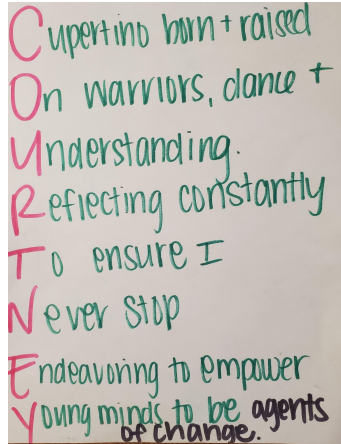 Cupertino born + raised
On warriors, dance +
Understanding.
Reflecting constantly
To ensure I
Never stop
Endeavoring to empower
Young minds to be agents
of change.